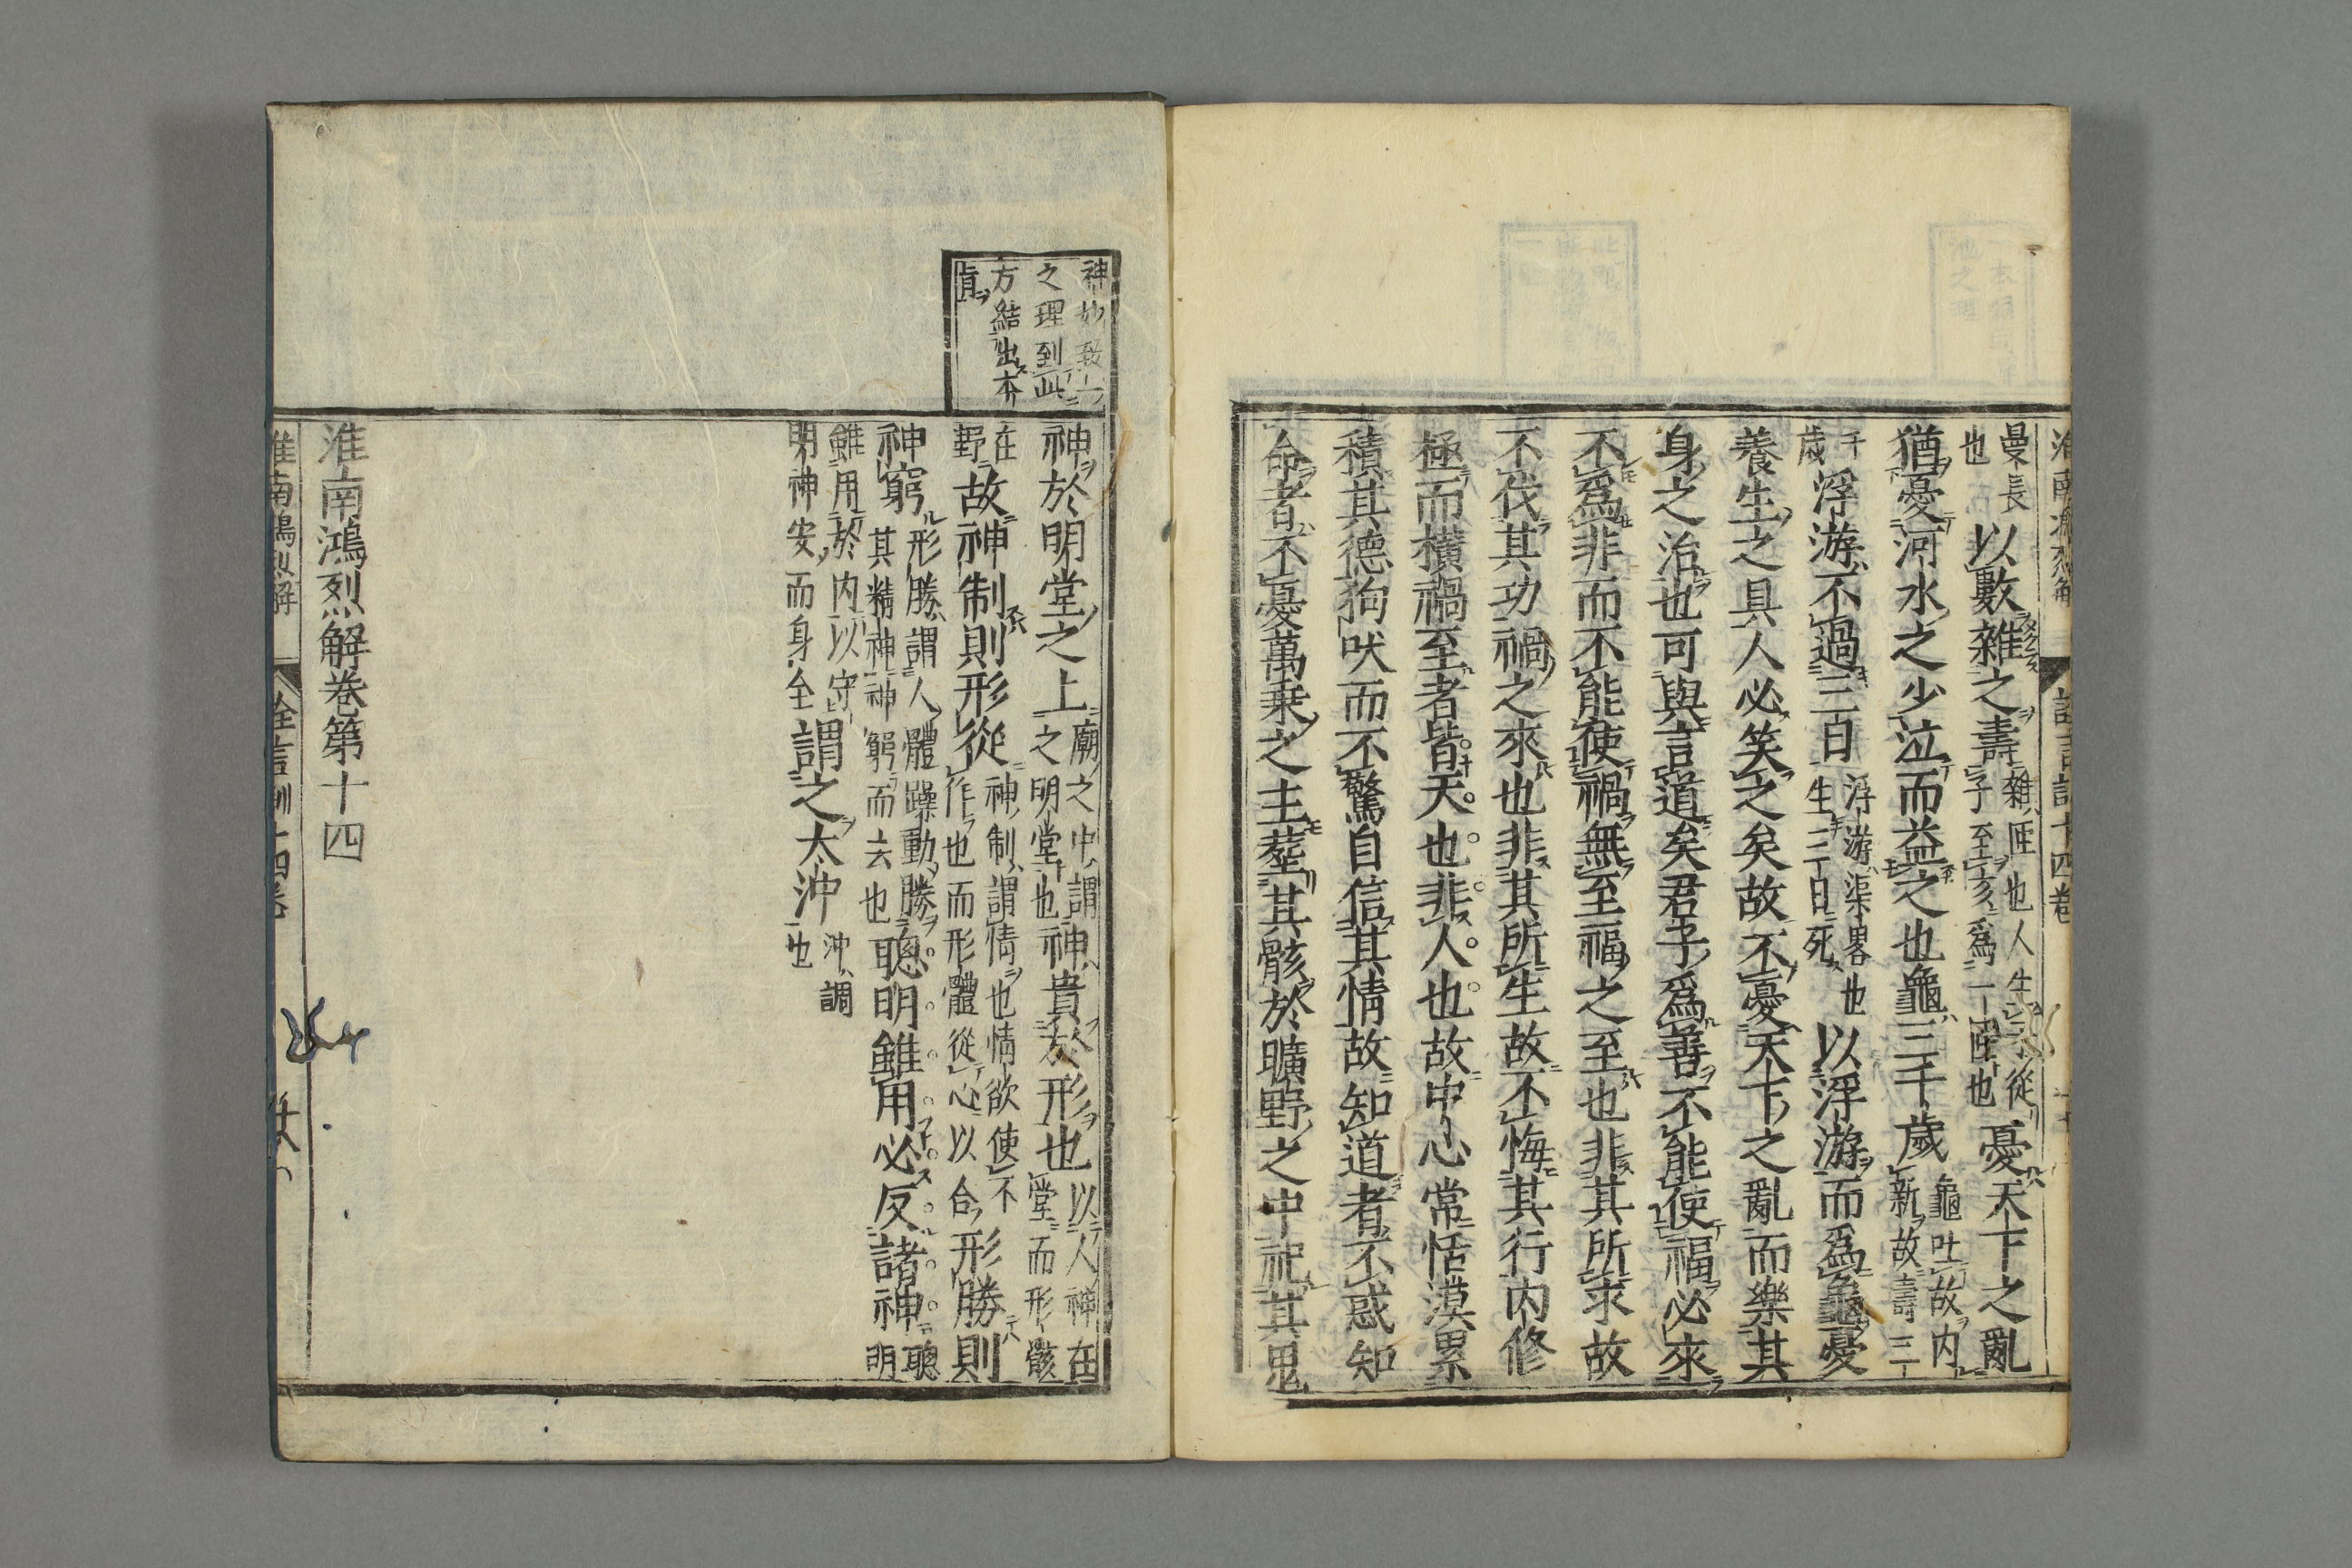 曼長也以數雜之壽雜匝也人生子從子至亥爲一匝也憂天下之亂
猶憂河水之少泣而益之也龜三千歲龜吐故内新故壽三
千歲浮游不過三日浮游渠畧也生三日死以浮游而爲龜憂
養生之具人必笑之矣故不憂天下之亂而樂其
身之治也可與言道矣君子爲善不能使福必來
不爲非而不能使禍無至福之至也非其所求故
不伐其功禍之來也非其所生故不悔其行内修
極而橫禍至者皆天也非人也故中心常恬漠累
積其德狗吠而不驚自信其情故知道者不惑知
命者不憂萬乗之主葬其骸於曠野之中祀其鬼
神妙致
之理到此
方結出本
㫖
神於明堂之上廟之中謂之明堂也神貴於形也以人神在堂而形骸
在野故神制則形從神制謂情也情欲使不作也而形體從心以合形勝則
神窮形勝謂人體躁動勝其精神神窮而去也聰明雖用必反諸神聰明
雖用於内以守明神安而身全謂之太沖沖調也
淮南鴻烈解卷第十四
淮南鴻烈解 詮言訓十四卷